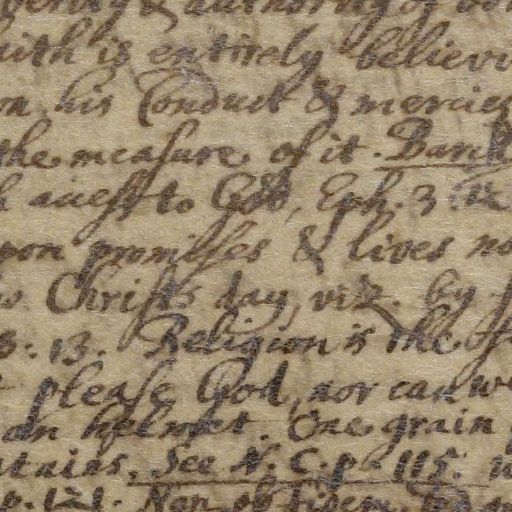 & authority of
aith is entirely believi
on his Conduct & mercies
the measure of it. Barth
access to God, Eph. 3. 12
pon promisses & lives
Christs day, viz. by
: 13. Religion is the
please God, nor can we
an helmet. One grain
ntains. See N. C. p. 115.
p. 121. Nan ob fidem.